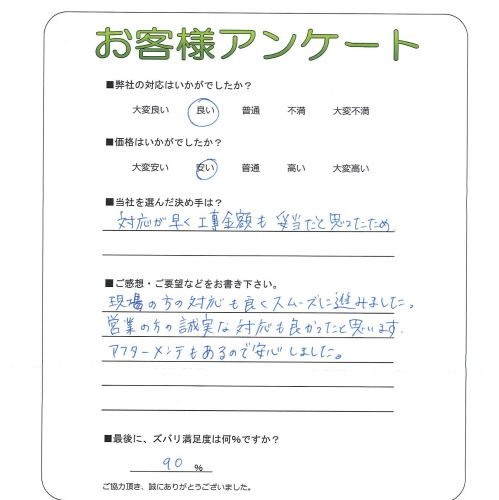 お客様アンケート
■弊社の対応はいかがでしたか？
大変良い 良い 普通 不満 大変不満
■価格はいかがでしたか？
大変安い 安い 普通 高い 大変高い
■当社を選んだ決め手は？
対応が早く工事金額も妥当だと思ったため
■ご感想・ご要望などをお書き下さい。
現場の方の対応も良くスムーズに進みました。
営業の方の誠実な対応も良かったと思います.
アフターメンテもあるので安心しました。
■最後に、ズバリ満足度は何%ですか？
90 %
ご協力頂き、誠にありがとうございました。